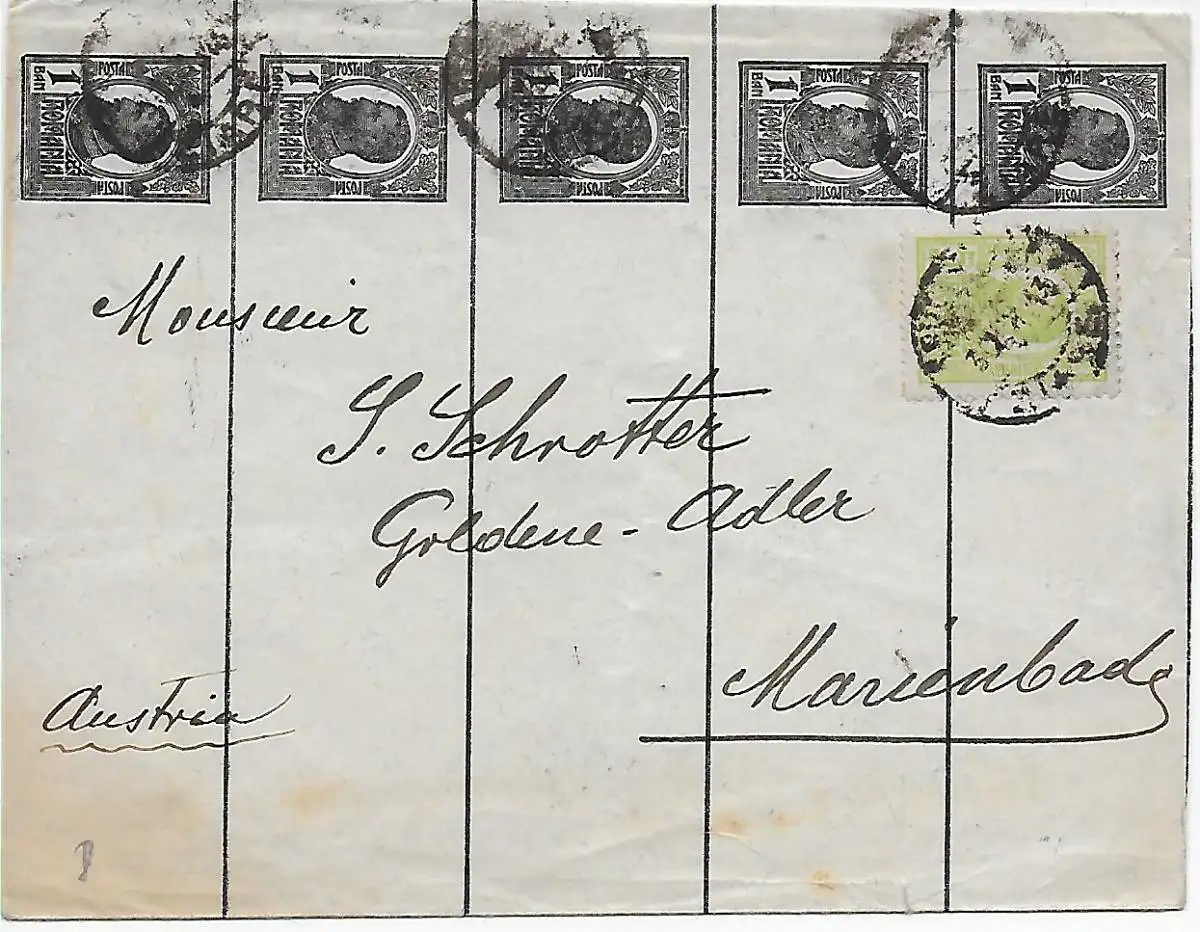 1 BANI POSTA ROMANIA POSTA
1 BANI POSTA ROMANIA POSTA
1 BANI POSTA ROMANIA POSTA
1 BANI POSTA ROMANIA POSTA
1 BANI POSTA ROMANIA POSTA
Monsieur
S. Schrotter
Goldene-Adler
Marienbad
Austria